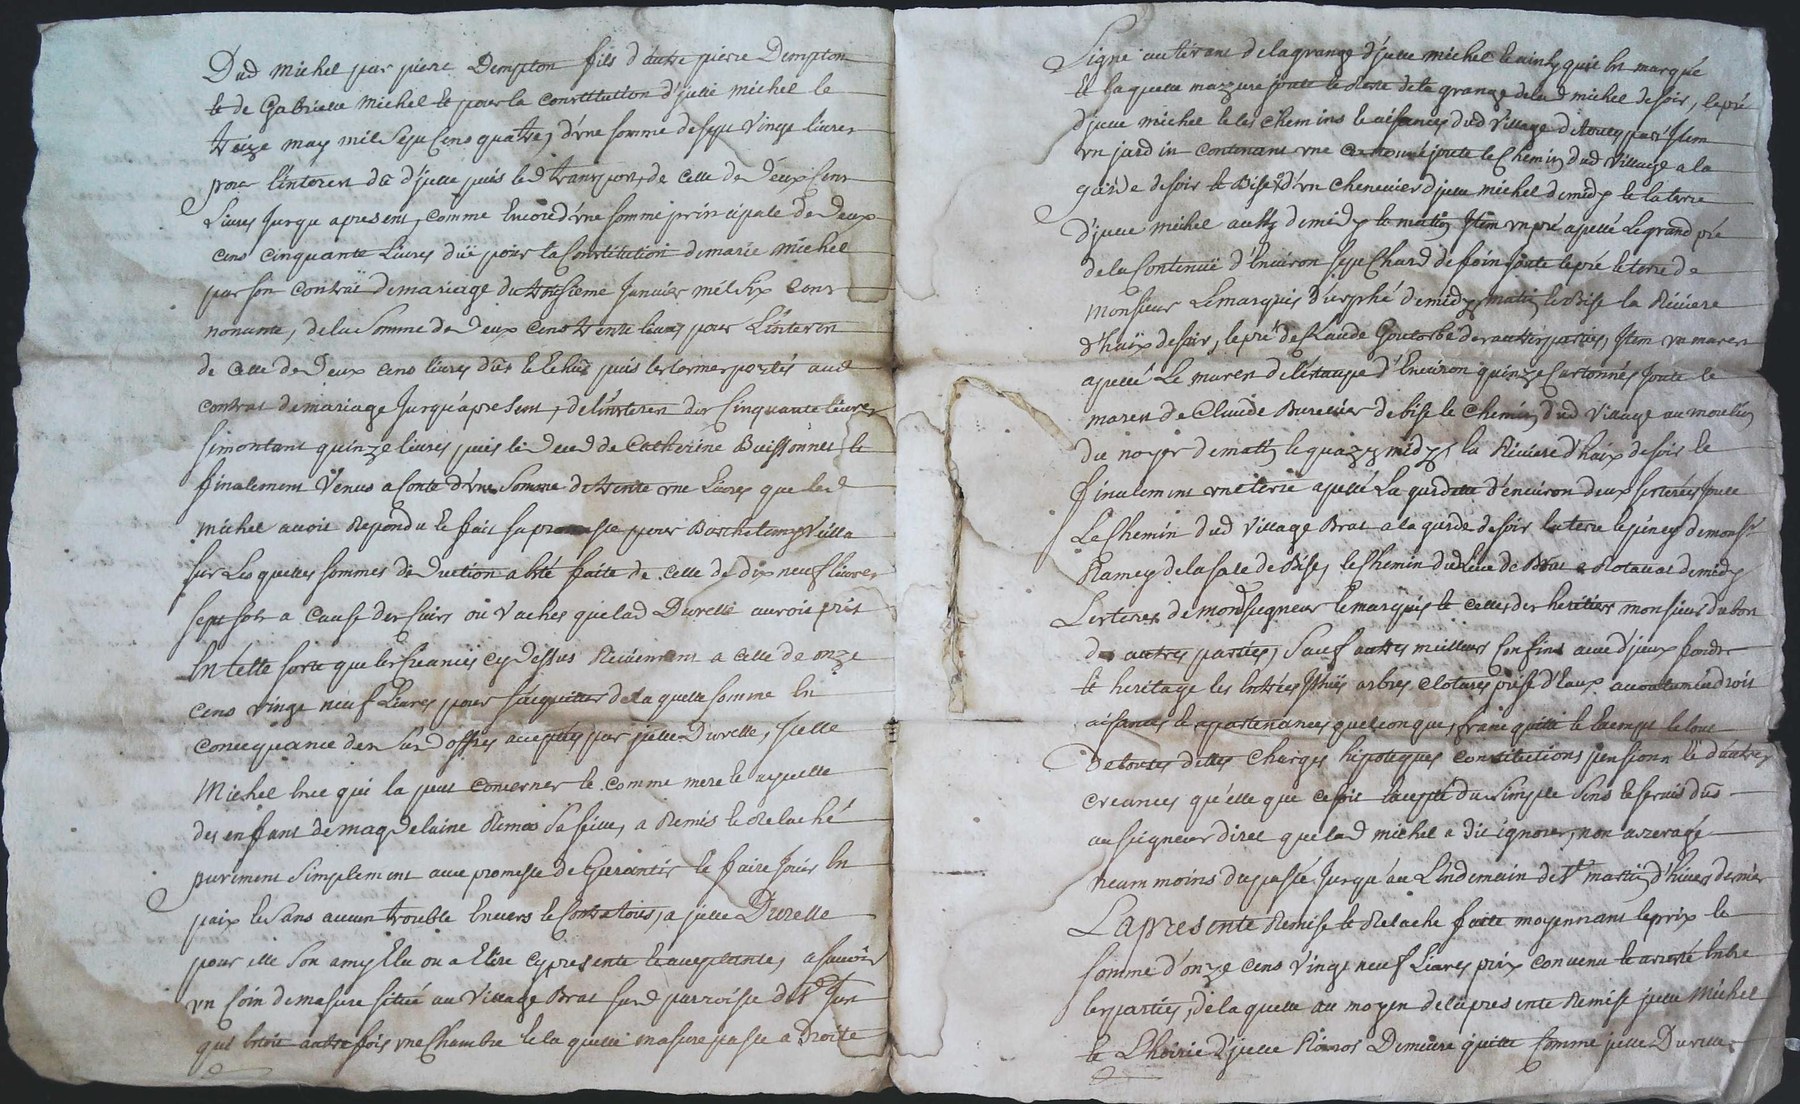 Dud Michel par pierre Dempton fils d'autre pierre Dempton
et de Gabrielle Michel et pour la constitution d'jcelle michel le
treize may mil sept Cens quatre, d'vne somme de sept vingt livres
pour l'interest dû d'jcelle puis led transport, de celle de deux Cens
Livres Jusqu apresent, comme Encore d'vne somme principale de deux
cens cinquante Livres düe pour la Constitution de marie michel
par son contrat de mariage du Janvier mil Six Cens
nonante, de la Somme de deux cens trente livres pour L'interest
de celle de deux cens livres puis les termes portés aud
contrat de mariage Jusqu'apresent, de l'interest des Cinquante livres
se montant quinze livres puis le deced de Catherine Buissonnet et
finalement Venus a Conte d'vne Somme de trente vne Livres que led
Michel avoit Repondu et fait sa promesse pour Barthelemy Vialla
sur Lesquelles sommes deduction a été faite de celle de dix neuf livres
sept sols a Cause des ou Vaches que lad Durelle auroit pris
En telle sorte que les creances cy dessus Reviennent a celle de onze
cens vingt neuf Livres pour s'acquitter de la quelle somme En
consequance des Susd offres acceptés par jcelle Durelle, jcelle
Michel Ence qui la peut concerner et comme mere et ayeulle
des enfans de magdelaine Rimos Sa fille, a Remis et Relaché
purement Simplement avec promesse de Garantir et faire Jouir En
paix et Sans aucun trouble Envers et Contre tous, a jcelle Durelle
pour elle Son amy Elu ou a Elire cy presente et acceptante, a sçavoir
vn Coin de masure situé au Village Brat susd parroisse de St
qui Etoit autrefois vne Chambre et la quelle masure passe a Droite
Ligne au tirant de la grange d'jcelle michel quil En marqué
et la quelle mazure joute le Reste de la grange de lad michel de soir, le pré
d'jcelle michel et les chemins et aisances dud Village Item
vn jardin contenant vne joute le Chemin dud Village a la
de soir et Bise, d'vn chenevier d'jcelle michel de midy et la terre
d'jcelle michel aussy de midy et matin, Item vn pré apellé Le grand pré
de la Contenüe d'Environ sept Chard de foin joute le pré et terre de
Monsieur Le marquis d'urphé de midy, matin et Bise la Riviere
d'haix de soir, le pré de Claude Goutorbe des autres parties, Item vn marest
apellé Le marest de l'étaupe d'Environ quinze Cartonnés Joute le
marest de Claude Buretier de bise le Chemin dud Village au moulin
du noyer de matin et midy, la Riviere d'haix de soir et
finalement vne terre apellé La d'environ deux joute
Le Chemin dud Village Brat a la de soir la terre et piney de monsr
Ramey de la sale de Bise, le Chemin dud Lieu de Brat a de midy
Les terres de mondseigneur le marquis et celles des heritiers monsieur
des autres parties, Sauf autres meilleurs Confins avec d'jceux fonds
et heritage les Entrées jssües arbres clotures prise d'Eaux droit
aisances et apartenances quelconque, franc quitte et Exempt et le tout
De toutes dettes charges hipoteques constitutions pension et d'autres
creances qu'elle que ce soit Excepté du simple Cens et servis dûs
au Seigneur direct que lad michel a dit ignorer, non arreragé
neant moins du passé Jusqu'au Lendemain de St martin d'hiver dernier
La presente Remise et Relache faite moyennant le prix et
somme d'onze cens vingt neuf Livres prix convenu et arreté Entre
les parties, de la quelle au moyen de la presente Remise jcelle Michel
et L'hoirie d'jcelle Rimos Demeure quitte Comme jcelle Durelle